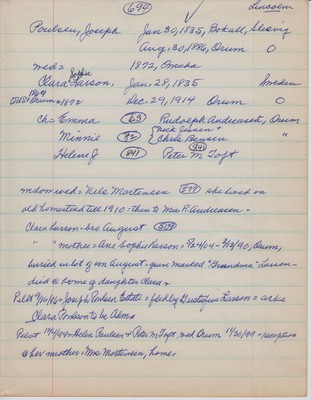 694
Lincoln
Poulsen, Joseph Jan 30, 1835, Bokall, Slesvig
Aug, 30, 1886, Orum O
wed = 1872, Omaha
Clara Sophie Larson, Jan. 28, 1835 Sweden
1869
Orum 1872 Dec. 29, 1914 Orum O
Ch = Emma 63 Rudolph Andreasen, Orum
Minnie 92 { Nick Jessen +
Chris Bensen "
Helene J 841 Peter M Toft 841
mdom wed = Nels Mortensen she lived on
old homestead till 1910 - then to Mrs R. Andreasen.
Clara Larson - bro August 509
" " mother = Ane Sophie Larson = 9/20/04 - 9/13/90, Orum,
buried in lot of son August = grave marked "Grandma" Larson -
died @ home of daughter Clara =
Pilot 9/10/86 = Joseph Poulsen Estate = filed by Gustaf Larson = asks
Clara Poulsen to be Adms
Pilot = Helen Poulsen + Peter M Toft, wed Orum 11/30/99 = reception
@ her mother, Mrs Mortensen, home,